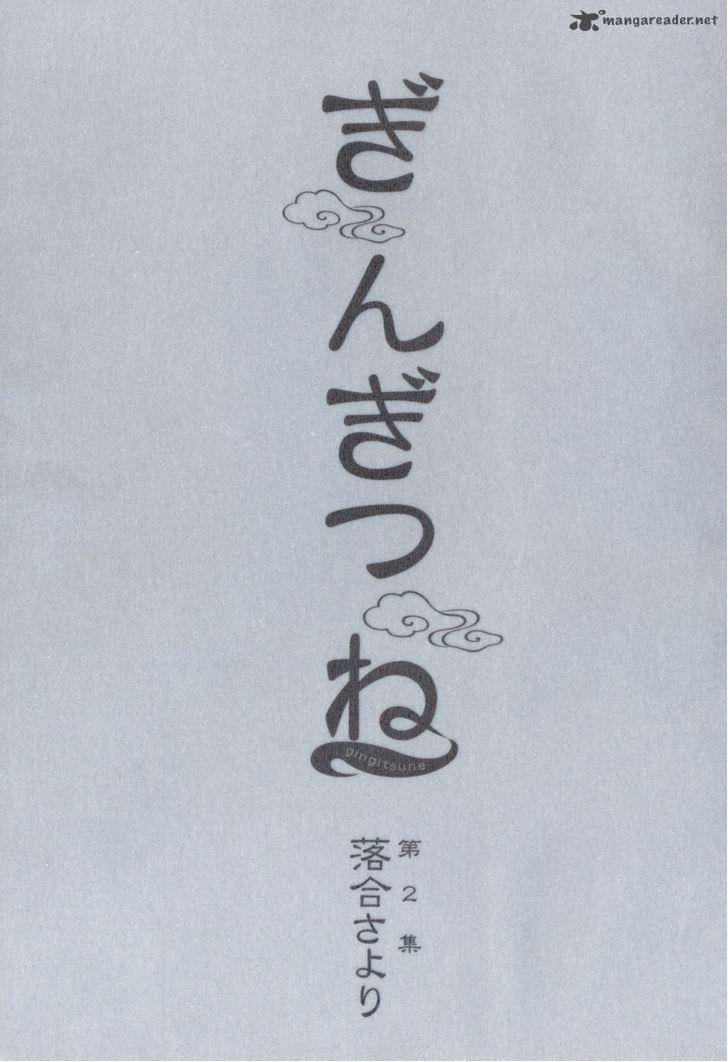 mangareader.net
ぎんぎつね
gingitsune
第2集
落合さより